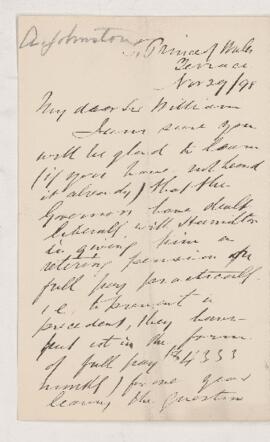 A. Johnstone
Prince of Wales
Terrace
Nov 29/98
My dear Sir William
I am sure you
will be glad to learn
(if you have not heard
it already) that the
Governors have dealt
liberally with Hamilton
in giving him a
retiring pension of
full pay practically
i.e. to prevent a
precedent, they have
put it in the form
of full pay £4333
for one year
leaving the question